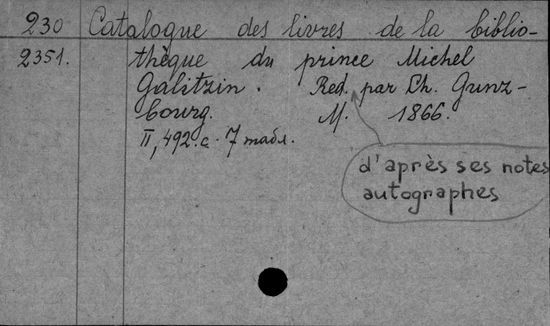 230 Catalogue des livres de la biblio-
2351. thèque du prince Michel
Galitzin. Red. par Ch. Gunz-
bourg. M. 1866.
II, 492 с. 7 табл.
d'après ses notes
autographes